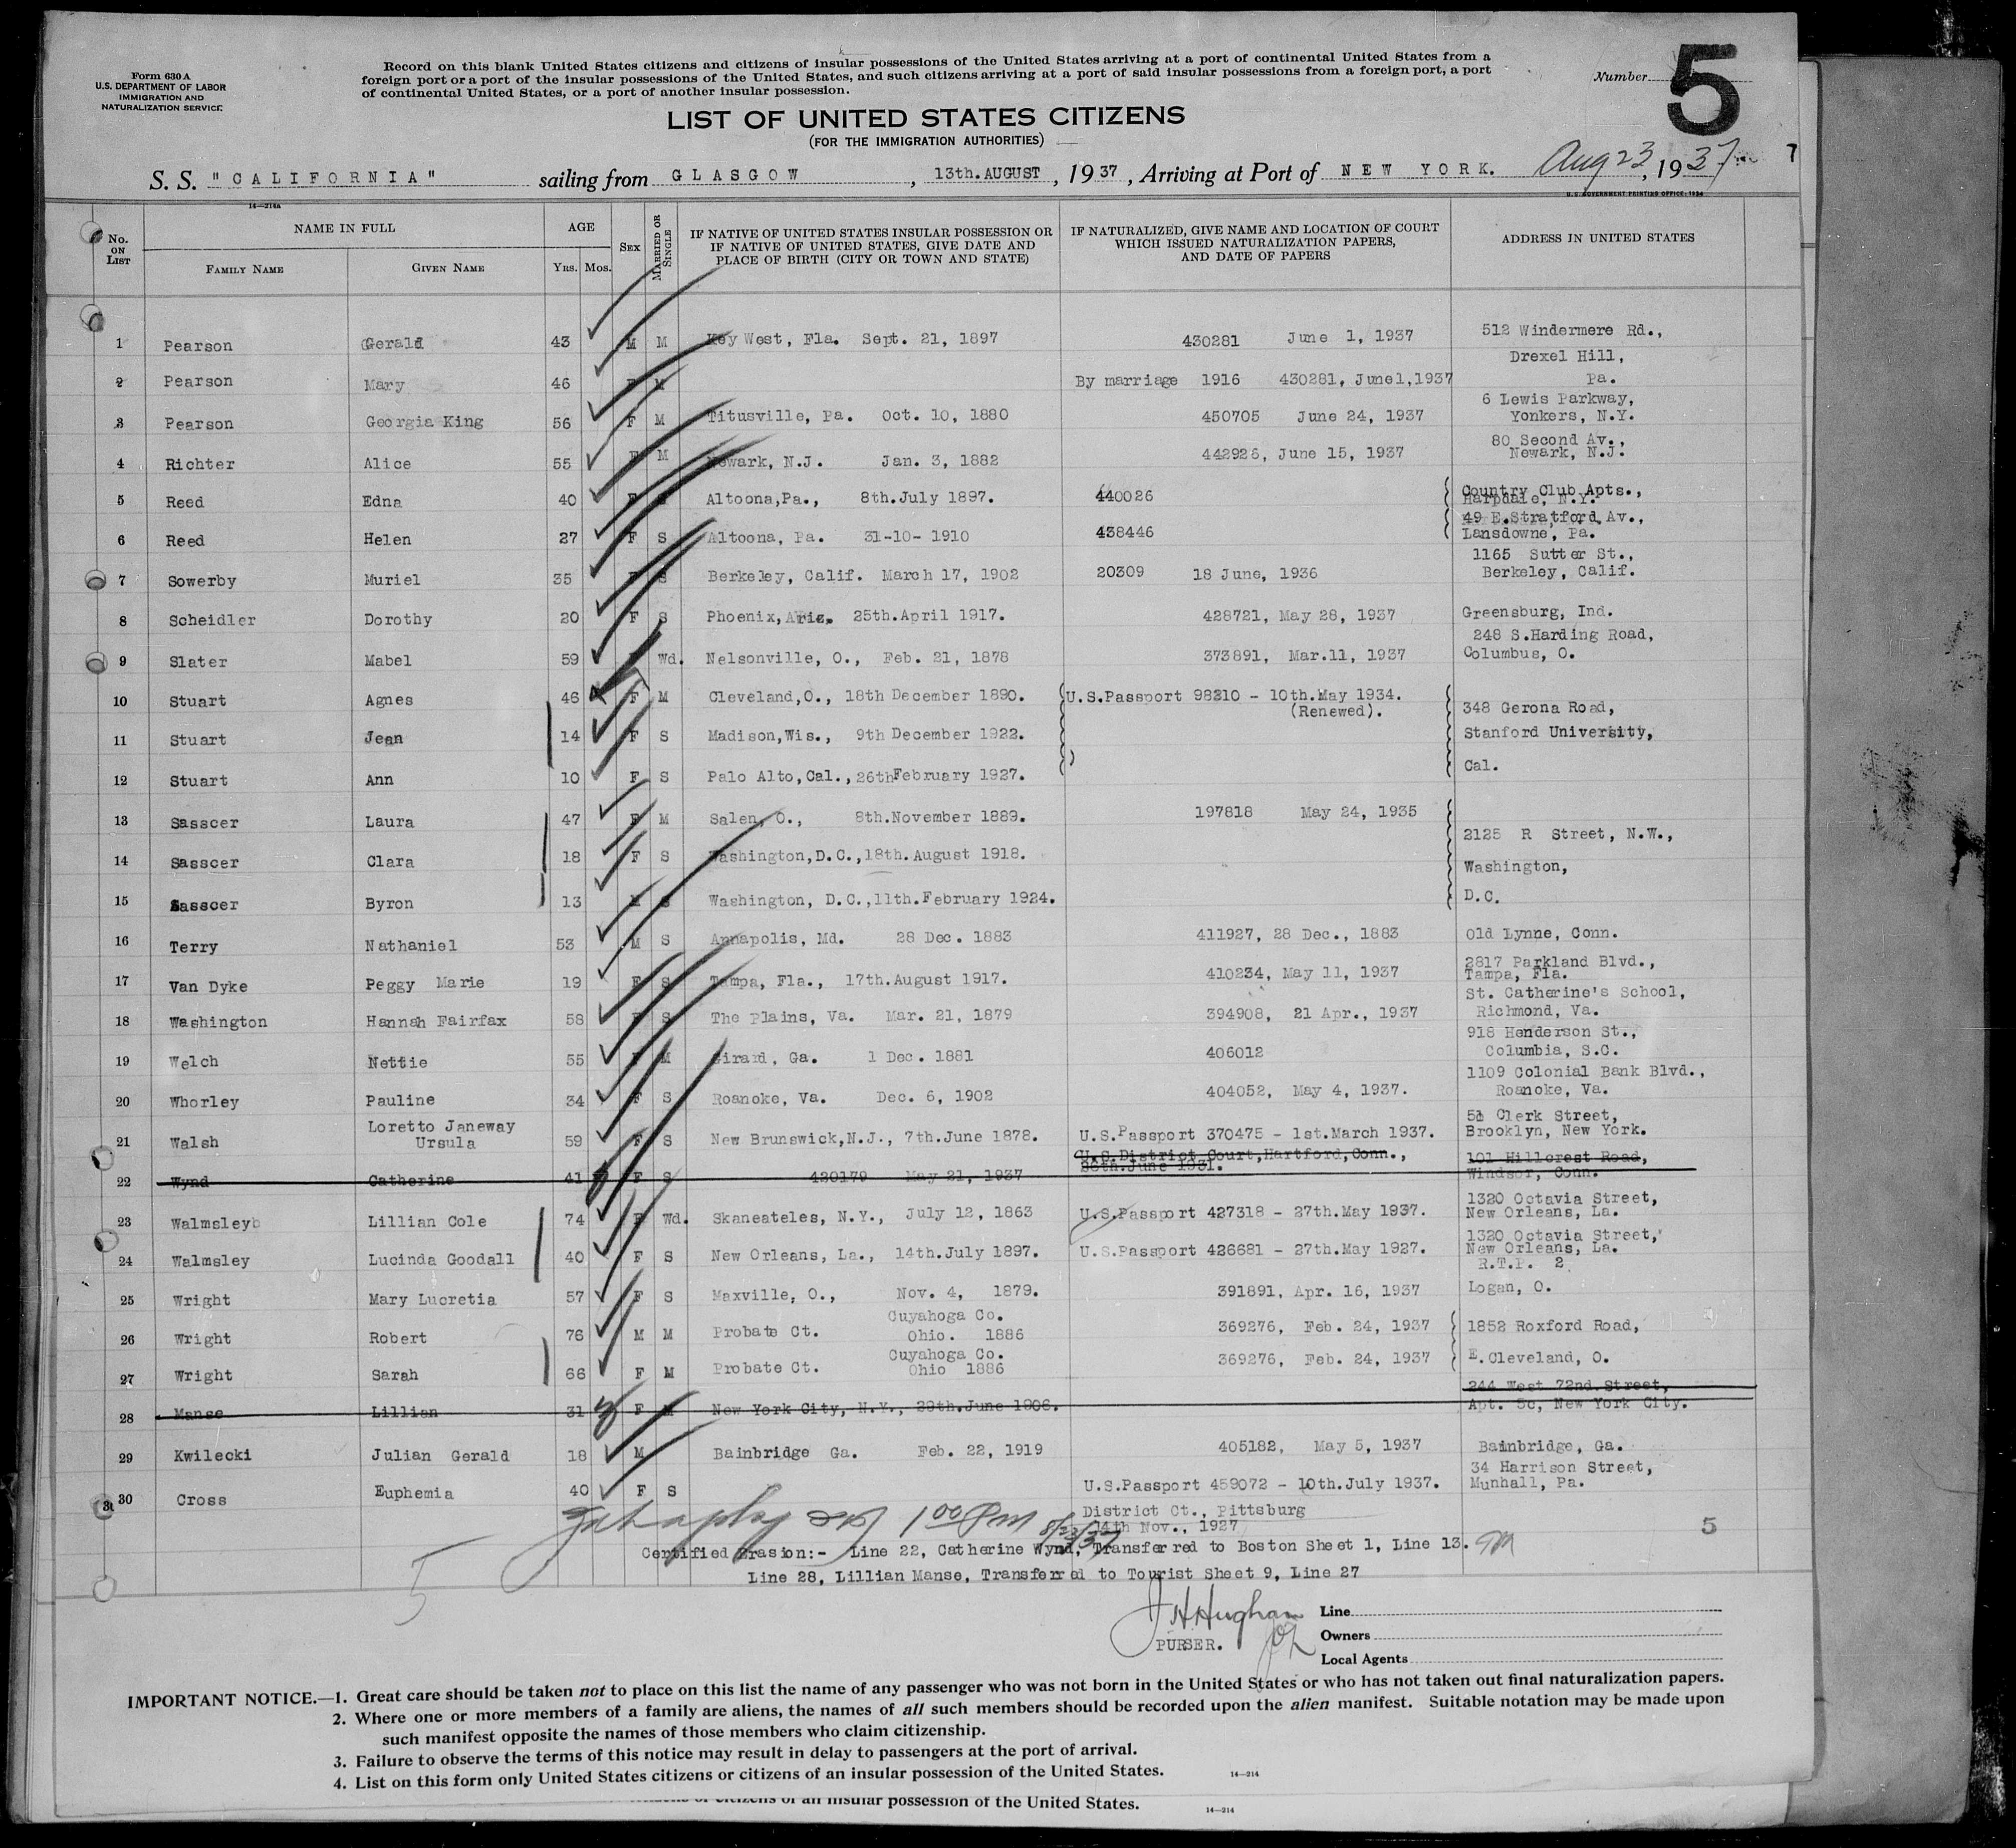 Form 630 A
U.S. DEPARTMENT OF LABOR
IMMIGRATION AND
NATURALIZATION SERVICE
Record on this blank United States citizens and citizens of insular possessions of the United States arriving at a port of continental United States from a
foreign port or a port of the insular possessions of the United States, and such citizens arriving at a port of said insular possessions from a foreign port, a port
of continental United States, or a port of another insular possession.
Number 5
LIST OF UNITED STATES CITIZENS
(FOR THE IMMIGRATION AUTHORITIES)
S. S. "CALIFORNIA" sailing from GLASGOW, 13th.AUGUST, 1937, Arriving at Port of NEW YORK. Aug 23, 1937 7
U. S. GOVERNMENT PRINTING OFFICE: 1934
14—214a
No. ON LIST NAME IN FULL AGE SEX MARRIED OR SINGLE IF NATIVE OF UNITED STATES INSULAR POSSESSION OR IF NATIVE OF UNITED STATES, GIVE DATE AND PLACE OF BIRTH (CITY OR TOWN AND STATE) IF NATURALIZED, GIVE NAME AND LOCATION OF COURT WHICH ISSUED NATURALIZATION PAPERS, AND DATE OF PAPERS ADDRESS IN UNITED STATES
FAMILY NAME GIVEN NAME YRS. MOS.
1 Pearson Gerald 43 M M Key West, Fla. Sept. 21, 1897 430281 June 1, 1937 512 Windermere Rd.,
Drexel Hill,
2 Pearson Mary 46 F M By marriage 1916 430281, June1,1937 Pa.
6 Lewis Parkway,
3 Pearson Georgia King 56 F M Titusville, Pa. Oct. 10, 1880 450705 June 24, 1937 Yonkers, N.Y.
80 Second Av.,
4 Richter Alice 55 F M Newark, N.J. Jan. 3, 1882 442926, June 15, 1937 Newark, N.J.
5 Reed Edna 40 F S Altoona,Pa., 8th.July 1897. 440026 Country Club Apts.,
Harpdale, N.Y.
49 E.Stratford Av.,
6 Reed Helen 27 F S Altoona, Pa. 31-10- 1910 438446 Lansdowne, Pa.
1165 Sutter St.,
7 Sowerby Muriel 35 F S Berkeley, Calif. March 17, 1902 20309 18 June, 1936 Berkeley, Calif.
8 Scheidler Dorothy 20 F S Phoenix,Ariz. 25th.April 1917. 428721, May 28, 1937 Greensburg, Ind.
248 S.Harding Road,
9 Slater Mabel 59 Wd. Nelsonville, O., Feb. 21, 1878 373891, Mar.11, 1937 Columbus, O.
10 Stuart Agnes 46 F M Cleveland,O., 18th December 1890. U.S.Passport 98210 - 10th.May 1934.
(Renewed). 348 Gerona Road,
11 Stuart Jean 14 F S Madison,Wis., 9th December 1922. Stanford University,
12 Stuart Ann 10 F S Palo Alto,Cal.,26thFebruary 1927. Cal.
13 Sasscer Laura 47 F M Salen, O., 8th.November 1889. 197818 May 24, 1935
2125 R Street, N.W.,
14 Sasscer Clara 18 F S Washington,D.C.,18th.August 1918.
Washington,
15 Sasscer Byron 13 M S Washington, D.C.,11th.February 1924. D.C.
16 Terry Nathaniel 53 M S Annapolis, Md. 28 Dec. 1883 411927, 28 Dec., 1883 Old Lynne, Conn.
2817 Parkland Blvd.,
17 Van Dyke Peggy Marie 19 F S Tampa, Fla., 17th.August 1917. 410234, May 11, 1937 Tampa, Fla.
St. Catherine's School,
18 Washington Hannah Fairfax 58 F S The Plains, Va. Mar. 21, 1879 394908, 21 Apr., 1937 Richmond, Va.
918 Henderson St.,
19 Welch Nettie 55 F M Girard, Ga. 1 Dec. 1881 406012 Columbia, S.C.
1109 Colonial Bank Blvd.,
20 Whorley Pauline 34 F S Roanoke, Va. Dec. 6, 1902 404052, May 4, 1937. Roanoke, Va.
Loretto Janeway 51 Clerk Street,
21 Walsh Ursula 59 F S New Brunswick,N.J., 7th.June 1878. U.S.Passport 370475 - 1st.March 1937. Brooklyn, New York.
U.S.District Court,Hartford,Conn., 101 Hillcrest Road,
22 Wynd Catherine 41 F S 420179 May 21, 1937 June 1931. Windsor, Conn.
1320 Octavia Street,
23 Walmsley Lillian Cole 74 F Wd. Skaneateles, N.Y., July 12, 1863 U.S.Passport 427318 - 27th.May 1937. New Orleans, La.
1320 Octavia Street,
24 Walmsley Lucinda Goodall 40 F S New Orleans, La., 14th.July 1897. U.S.Passport 426681 - 27th.May 1927. New Orleans, La.
R.T.P. 2
25 Wright Mary Lucretia 57 F S Maxville, O., Nov. 4, 1879. 391891, Apr. 16, 1937 Logan, O.
Cuyahoga Co.
26 Wright Robert 76 M M Probate Ct. Ohio. 1886 369276, Feb. 24, 1937 1852 Roxford Road,
Cuyahoga Co.
27 Wright Sarah 66 F M Probate Ct. Ohio 1886 369276, Feb. 24, 1937 E.Cleveland, O.
244 West 72nd.Street,
28 Manse Lillian 31 F M New York City, N.Y., 29th.June 1906. Apt. 5c, New York City.
29 Kwilecki Julian Gerald 18 M Bainbridge Ga. Feb. 22, 1919 405182, May 5, 1937 Bainbridge, Ga.
34 Harrison Street,
30 Cross Euphemia 40 F S U.S.Passport 459072 - 10th.July 1937. Munhall, Pa.
District Ct., Pittsburg
14th Nov., 1927
1 00 Pm 8/23/37 5
Certified Erasion:- Line 22, Catherine Wynd, Transferred to Boston Sheet 1, Line 13.
Line 28, Lillian Manse, Transferred to Tourist Sheet 9, Line 27
5
PURSER.
Line
Owners
Local Agents
IMPORTANT NOTICE.—1. Great care should be taken not to place on this list the name of any passenger who was not born in the United States or who has not taken out final naturalization papers.
2. Where one or more members of a family are aliens, the names of all such members should be recorded upon the alien manifest. Suitable notation may be made upon
such manifest opposite the names of those members who claim citizenship.
3. Failure to observe the terms of this notice may result in delay to passengers at the port of arrival.
4. List on this form only United States citizens or citizens of an insular possession of the United States.
14—214
citizens of an insular possession of the United States.
14—214